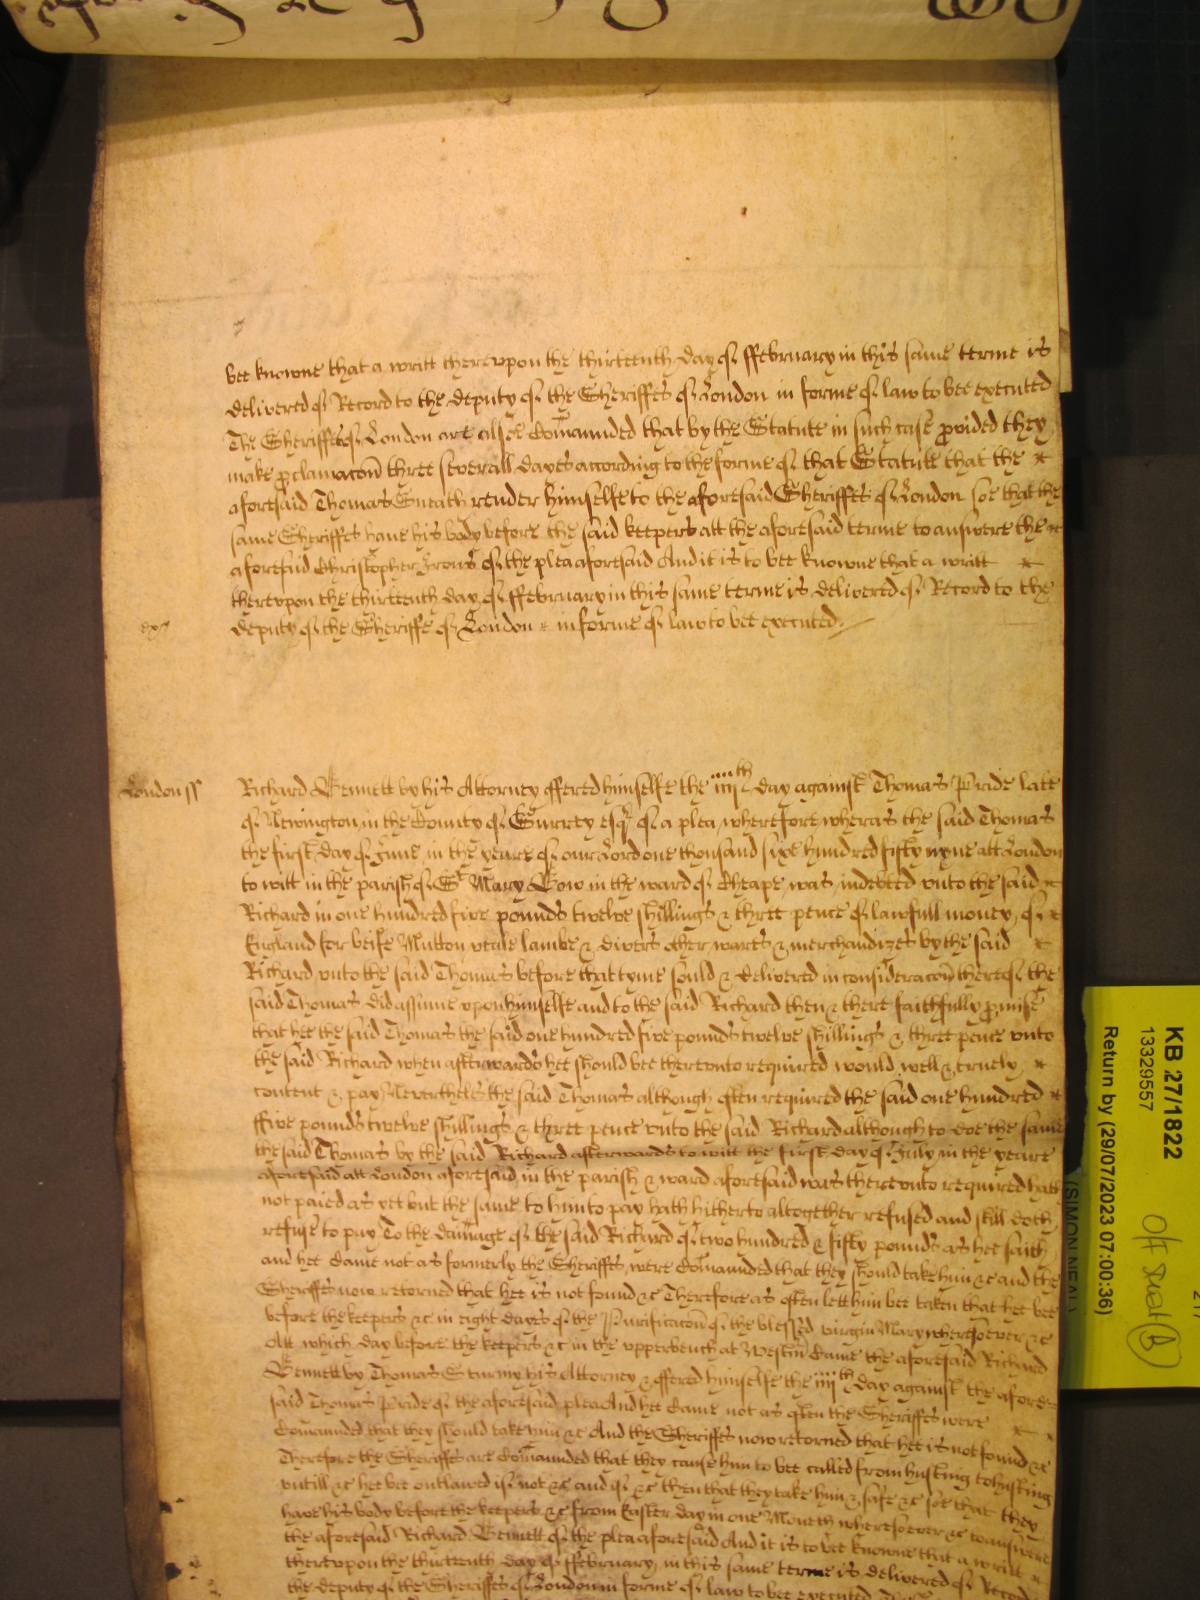 bee knowne that a writt thereupon the thirteenth day of ffebruary in this same terme is
delivered of Record to the deputy of the Sheriffes of London in forme of law to bee executed
The Sheriffes of London are alsoe Comaunded that by the Statute in such case pvided they
make pclamacon three severall dayes according to the forme of that Statute that the
aforesaid Thomas Sneath render himselfe to the aforesaid Sheriffes of London soe that the
same Sheriffes have his body before the said keepers att the aforesaid terme to answere the
aforesaid Christopher of the plea aforesaid And it is to bee knowne that a writt
thereupon the thirteenth day of ffebruary in this same terme is delivered of Record to the
deputy of the Sheriffe of London in forme of law to bee executed
London ss
Richard Bennett by his Attorney offered himselfe the iiiith day against Thomas Pride late
of Newington in the County of Surrey esqr of a plea wherefore wheras the said Thomas
the first day of June in the yeare of our Lord one thousand sixe hundred fifty nyne att London
to witt in the parish of St Mary Bow in the ward of Cheape was indebted unto the said
Richard in one hundred five pounds twelve shillings & three pence of lawfull money of
England for beife Mutton veale lambe & divers other wares & merchandizes by the said
Richard unto the said Thomas before that tyme sould & delivered in consideracon thereof the
said Thomas did assume upon himselfe and to the said Richard then & there faithfully pmise
that hee the said Thomas the said one hundred five pounds twelve shillings & three pence unto
the said Richard when afterwards hee should bee thereunto required would well & truely
content & pay Neverthelesse the said Thomas although often required the said one hundred
ffive pounds twelve shillings & three pence unto the said Richard although to doe the same
the said Thomas by the said Richard afterwards to witt the first day of July in the yeare
aforesaid att London aforesaid in the parish & ward aforesaid was thereunto required hath
not paied as yet but the same to him to pay hath hitherto altogether refused and still doth
refuse to pay To the damage of the said Richard of two hundred & fifty pounds as hee saith
and hee Came not as formerly the Sheriffes were Comaunded that they should take him &c and the
Sheriffes now retorned that hee is not found &c Therefore as often lett him bee taken that hee bee
before the keepers &c in eight dayes of the Purificacon of the blessed virgin Mary wheresoever &c
Att which day before the keepers &c in the upperbench at Westm Came the aforesaid Richard
Bennett by Thomas Sturmy his Attorney & offered himselfe the iiiith day against the afore
said Thomas Pride of the aforesaid plea And hee Came not as often the Sheriffes were
Comaunded that they should take him &c And the Sheriffes now retorned that hee is not found &c
Therefore the Sheriffes are Comaunded that they cause him to bee called from husting to husting
untill &c hee bee outlawed if not &c and if &c then that they take him & safe &c soe that they
have his body before the keepers &c from Easter day in one Moneth wheresoever &c to answere
the aforesaid Richard Bennett of the plea aforesaid And it is to bee knowne that a writt
thereupon the thirteenth day of ffebruary in this same terme is delivered of Record
the deputy of the Sheriffes of London in forme of law to bee executed
KB 27/1822
13329557
Return by (29/07/2023 07:00:36)
(SIMON NEAL)